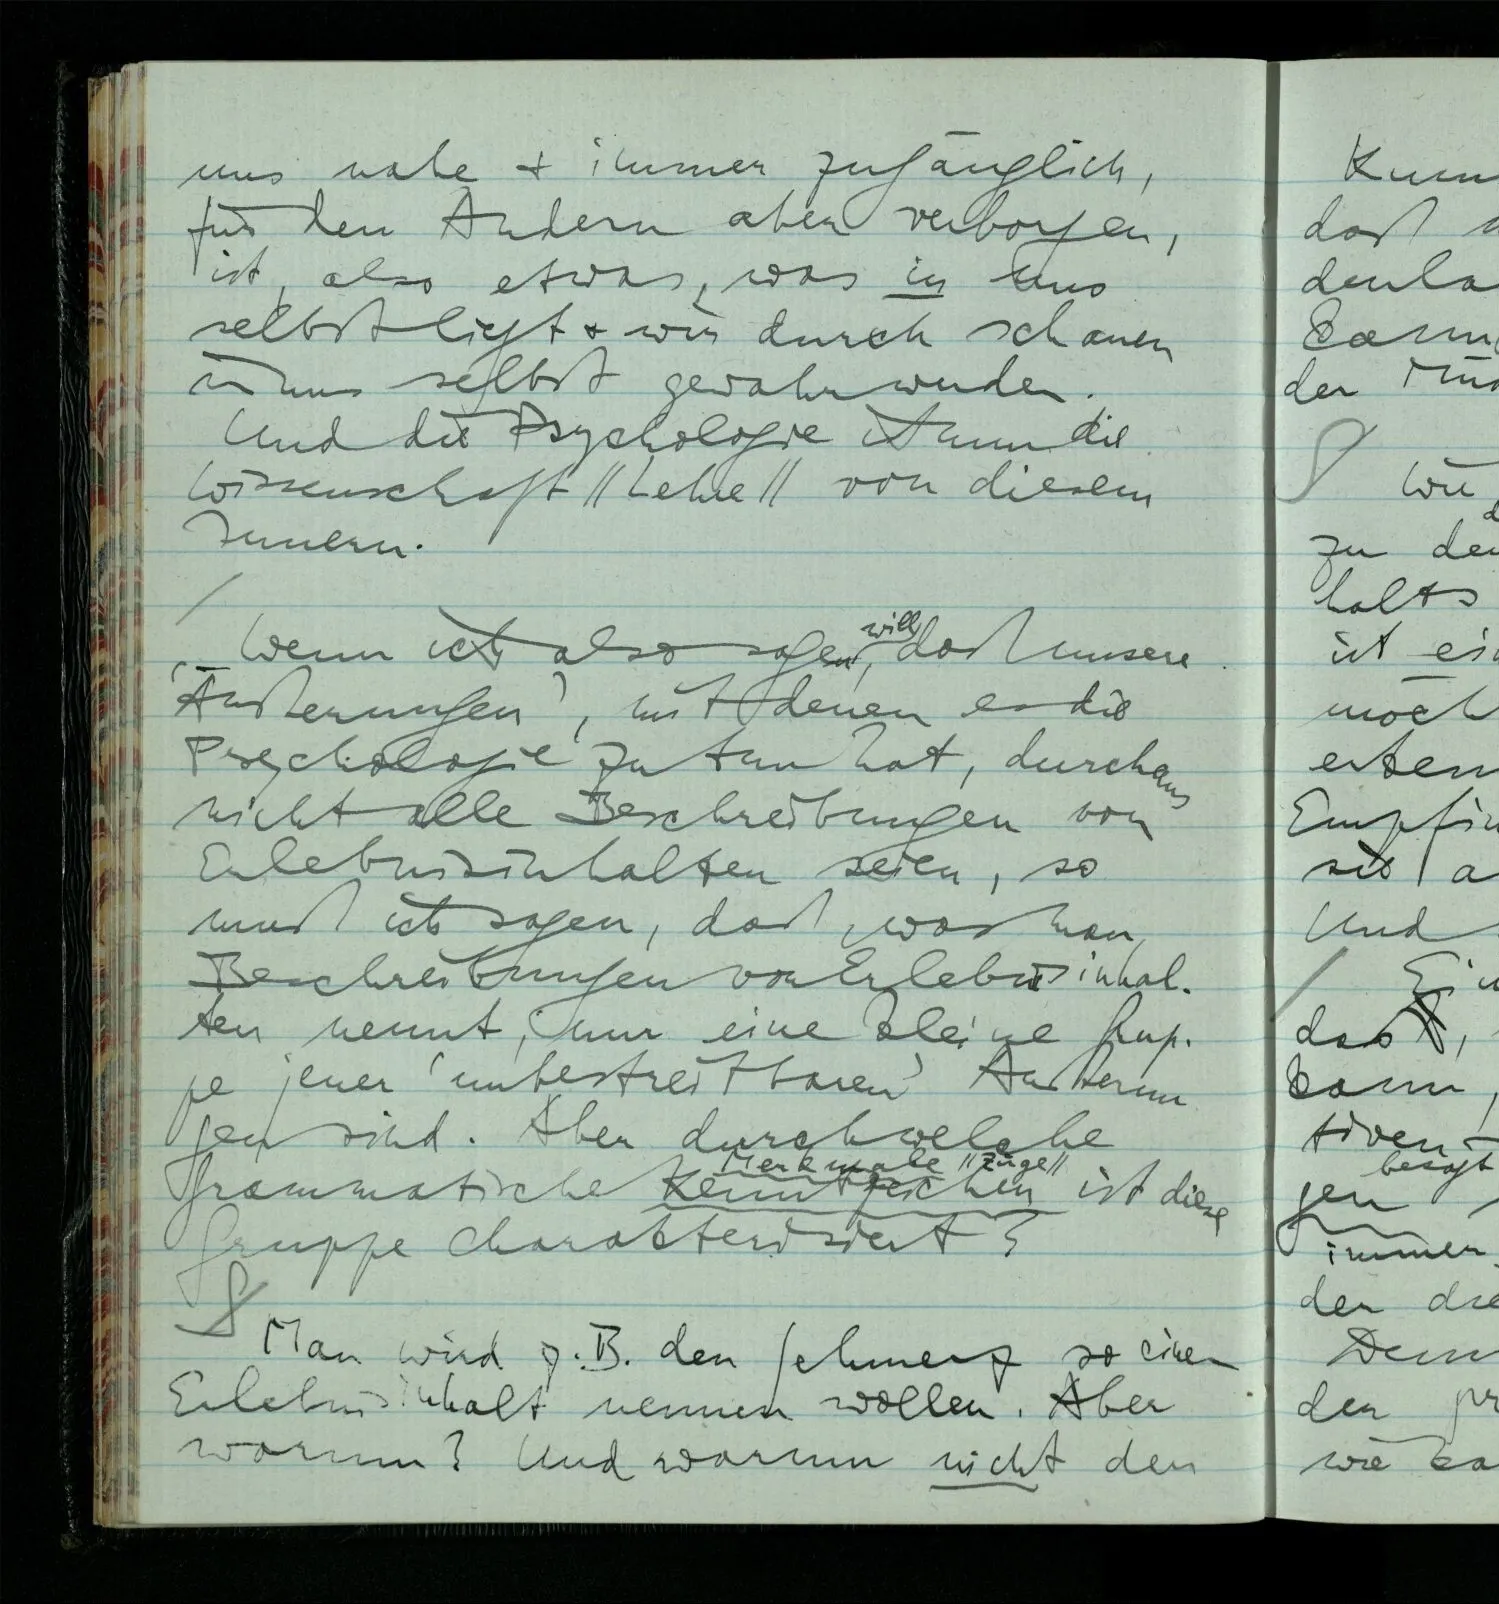 uns nahe + immer zugänglich,
für den Andern aber verborgen,
ist, also etwas, was in uns
selbst liegt + wir durch schauen
in uns selbst gewahr werden.
Und die Psychologie ist nun die
Wissenschaft //Lehre// von diesem
Innern.
/
Wenn ich also sagen will, daß unsere
‘Äußerungen’, mit denen es die
Psychologie zu tun hat, durchaus
nicht alle Beschreibungen von
Erlebnisinhalten seien, so
muß ich sagen, daß, was man
Beschreibungen von Erlebnisinhal-
ten nennt, nur eine kleine Grup-
pe jener ‘unbestreitbaren’ Äußerun
gen sind. Aber durch welche
Merkmale //Züge//
grammatische Kennzeichen ist diese
Gruppe charakterisiert?
Man wird z.B. den Schmerz so einen
Erlebnisinhalt nennen wollen. Aber
warum? Und warum nicht den
daß
der
Wie
zu
halts
ist
Und
besagt
immer
den
den
wie